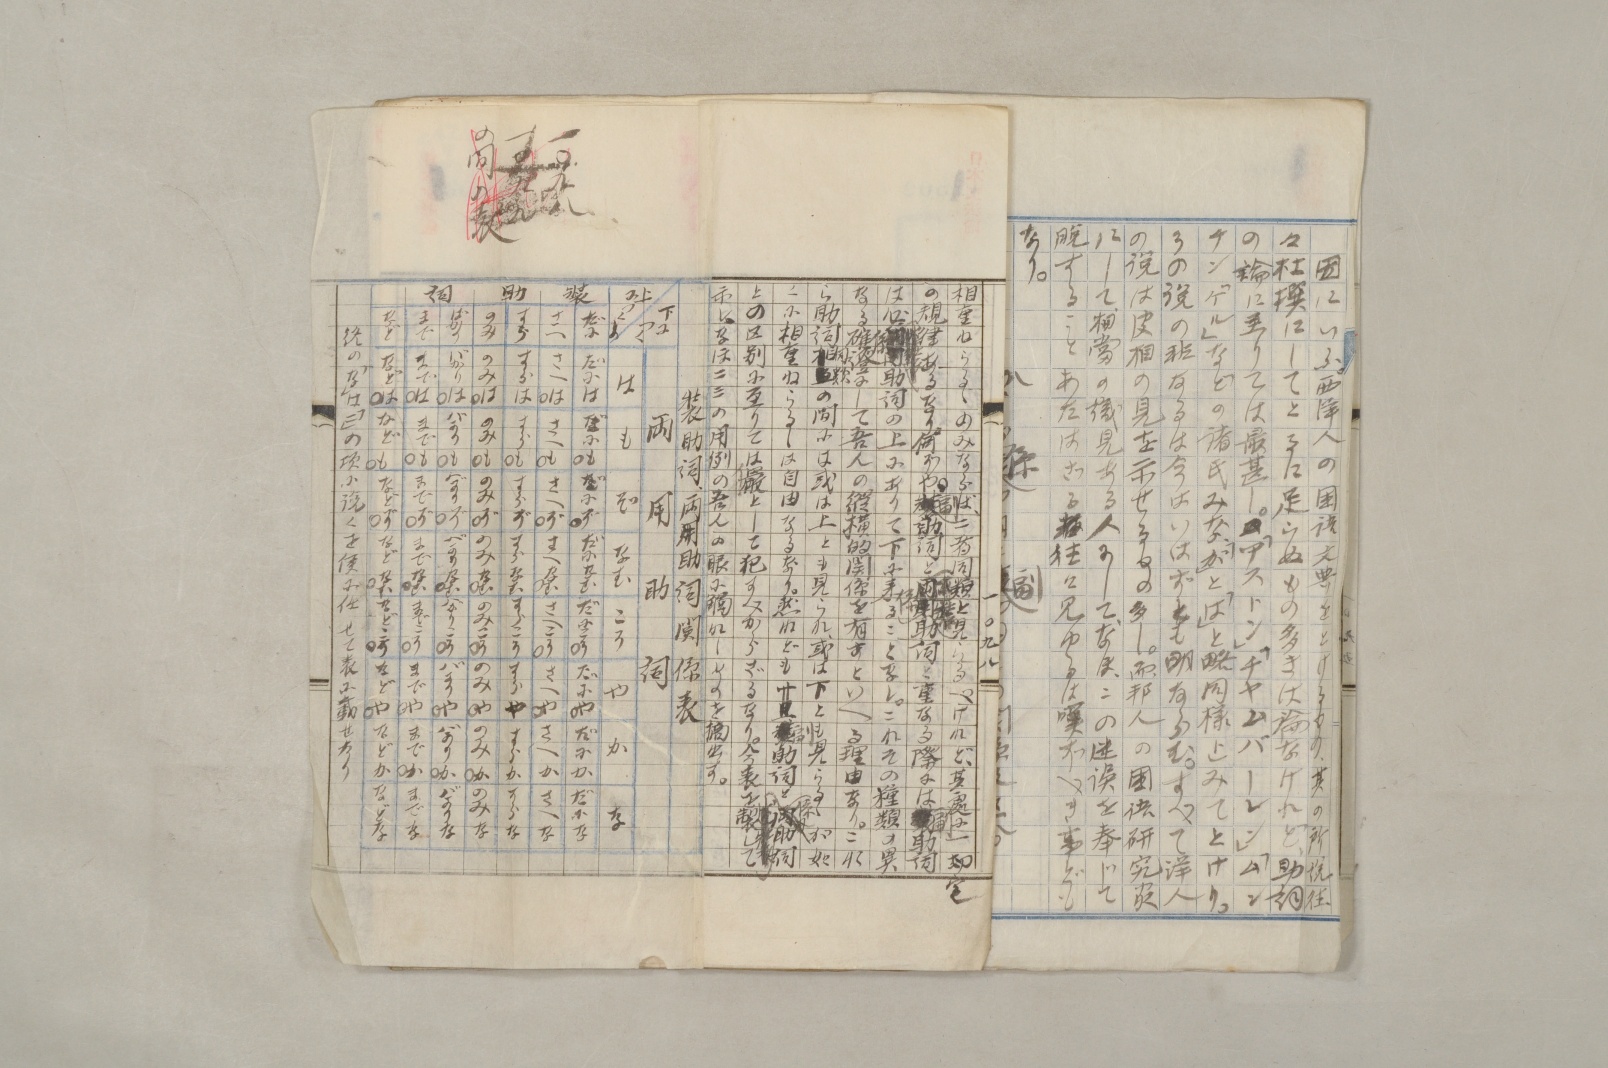 因にいふ。西洋人の国語文典をとけるもの、其の所説往
々杜撰にしてとるに足らぬもの多きは論なけれど、助詞
の論に至りては最甚し。「アストン」「チャムバーレン」「ムン
チンゲル」などの諸氏みな「が」と「は」と略同様にみてとけり。
その説の非なるは今はいはずとも明ならむ。すべて洋人
の説は皮相の見を示せるもの多し。而邦人の国語研究家
にして相当の識見ある人にして、なほこの迷誤を奉じて
脱することあたはざる往々見ゆるは嘆ずべき事ども
なり。
一〇九八
相重ねらるゝのみならば、二者同類と見らるべけれど、其処に一切定
の規律あるなり。何ぞや、副助詞と係助詞と重なる際には副助詞
は必係助詞の上にありて下に来ることなし。これその種類の異
なる確證にして吾人の縦横的関係を有すといへる理由なり。これ
ら助詞相類の間には或は上とも見られ、或は下とも見らるゝが如
に相重ねらるゝは自由なるなり。然れども副助詞と係助詞
との区別に至りては儼として犯すべからざるなり。今表を製して
示し、なほ二三の用例の吾人の眼に触れしものを摘出す。
一〇九九
の間の表
装助詞、両用助詞関係表
両用助詞
上なる 下に
は も ぞ なむ こそ や か な
装助詞
だに だには だにも だにぞ だになむ だにこそ だにや だにか だにな
さへ さへは さへも さへぞ さへなむ さへこそ さへや さへか さへな
すら すらは すらも すらぞ すらなむ すらこそ すらや すらか すらな
のみ のみは のみも のみぞ のみなむ のみこそ のみや のみか のみな
ばかり ばかりは ばかりも ばかりぞ ばかりなむ ばかりこそ ばかりや ばかりか ばかりな
まで までは までも までぞ までなむ までこそ までや までか までな
など などは なども などぞ などなむ などこそ などや などか などな
終の「な」は「三」の項に説くを後に仕せて表に載せたり